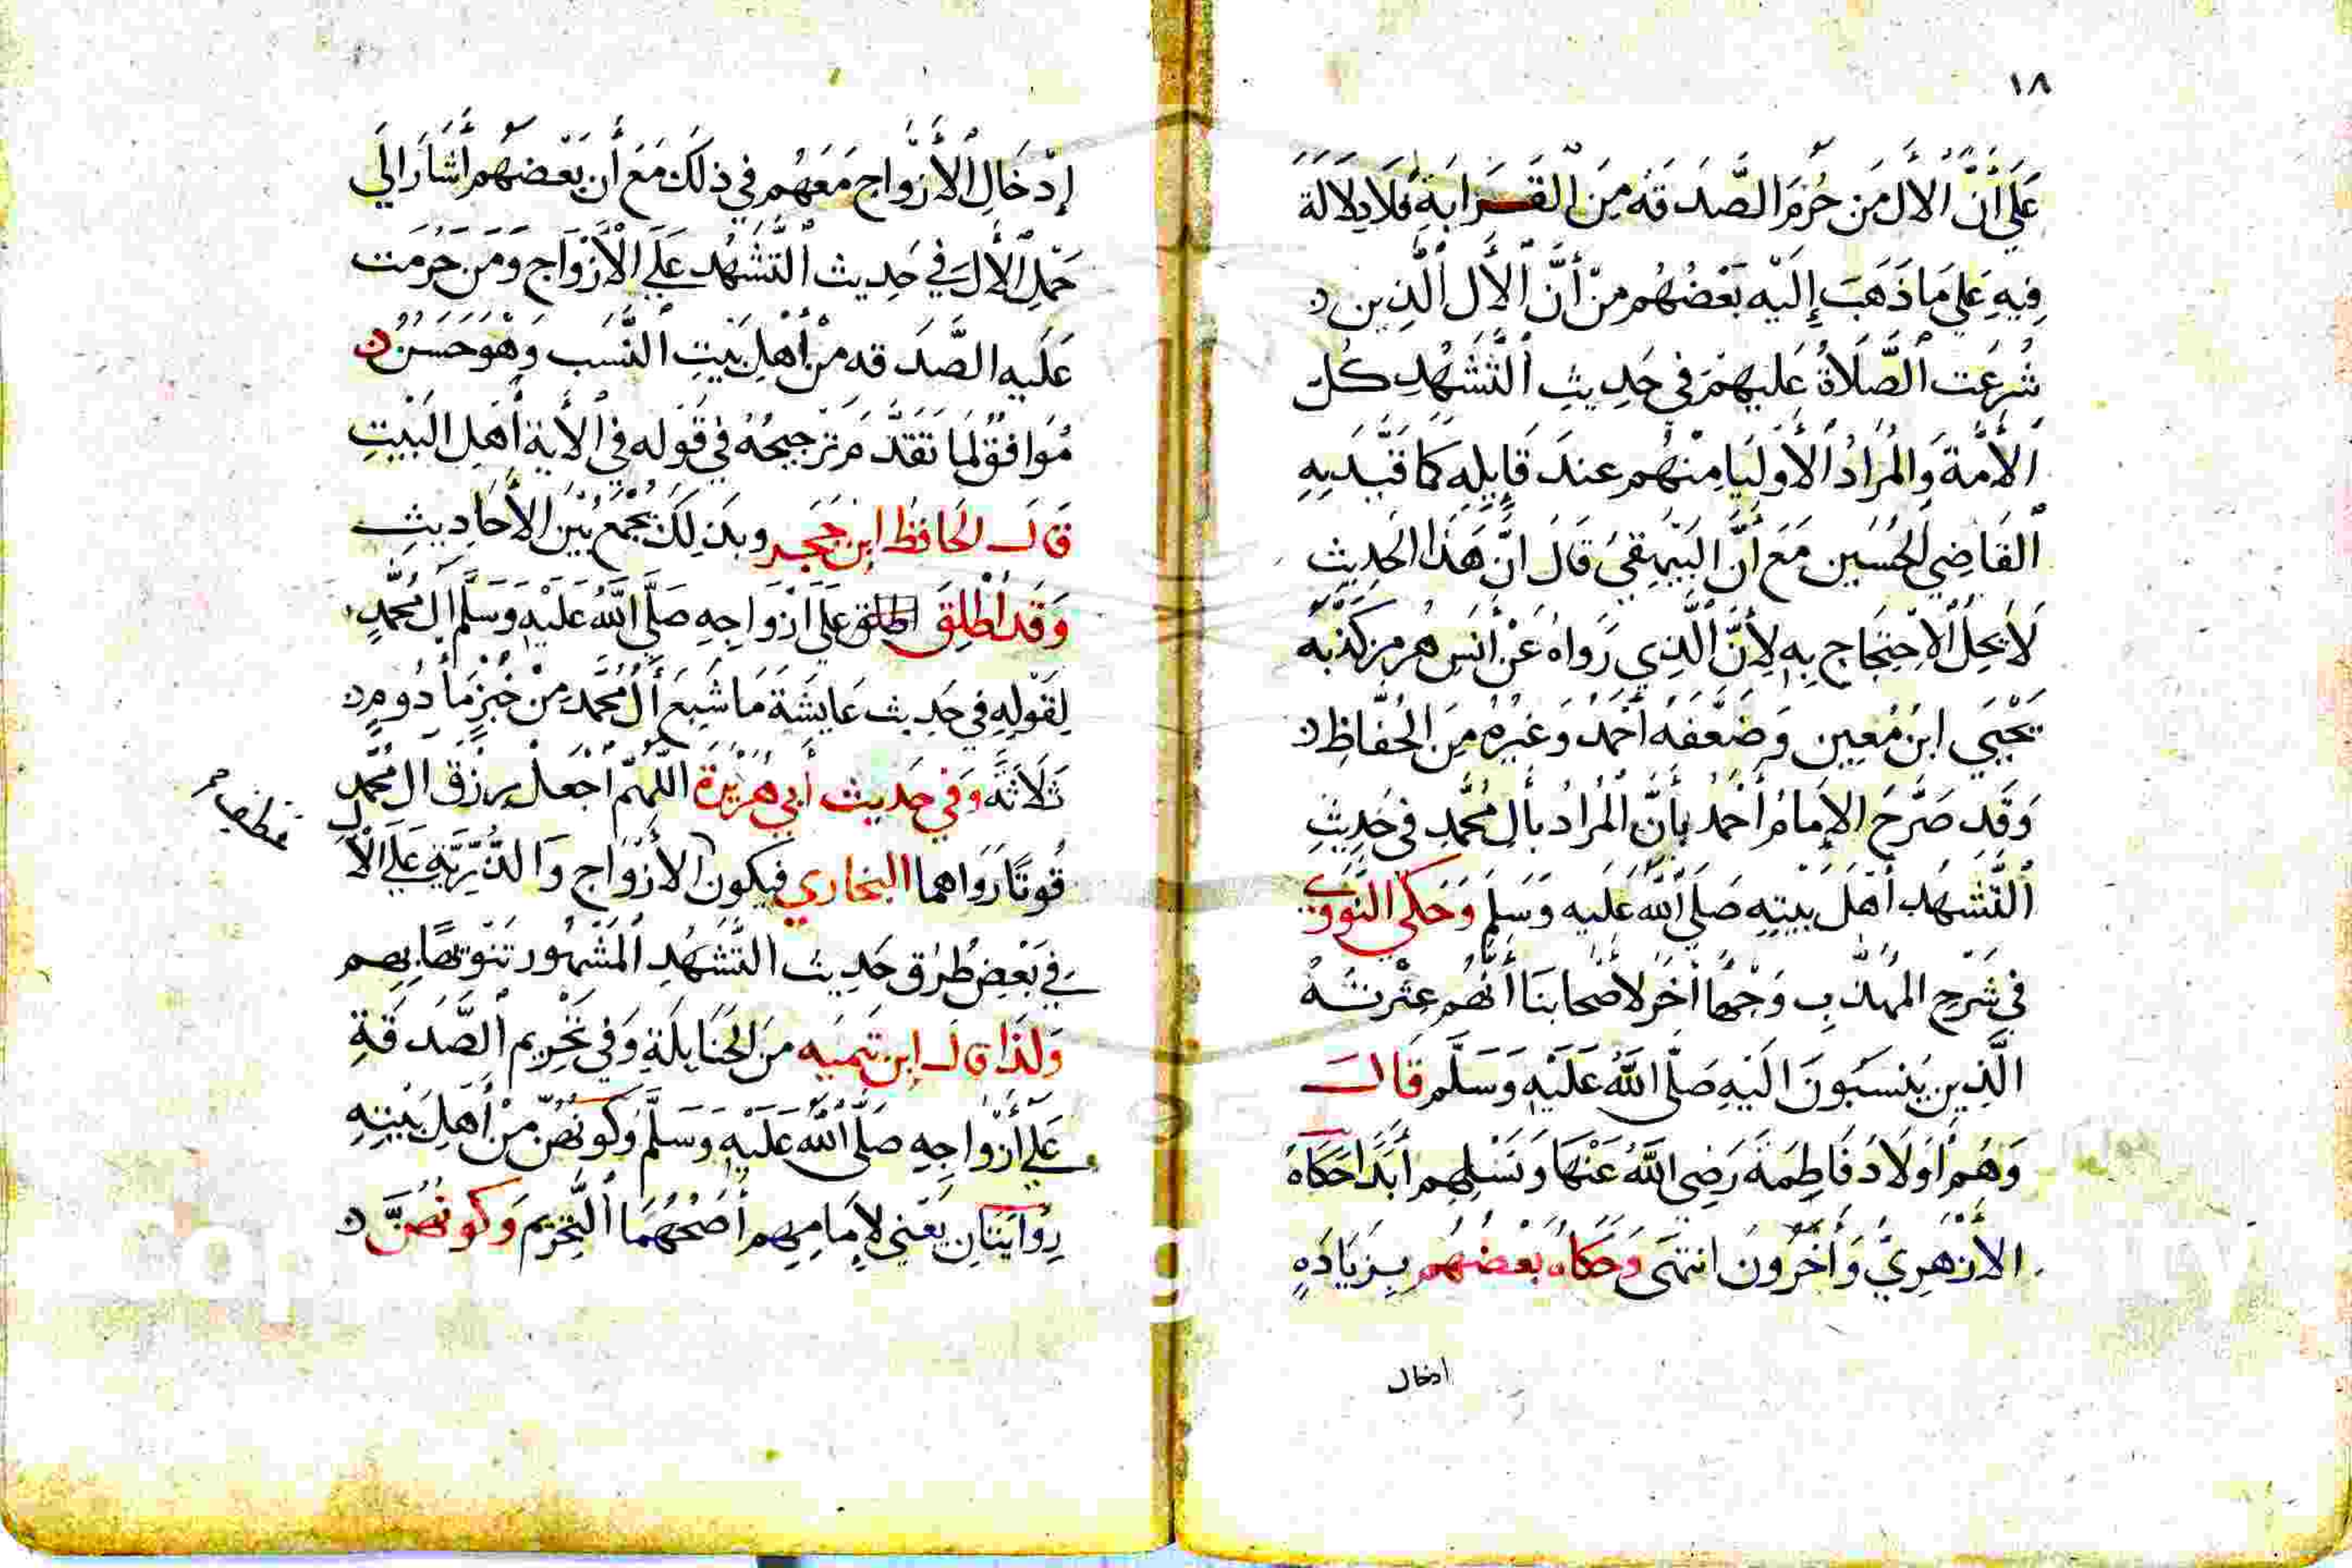 ١٨
عَلَى أَنَّ الآل مَن حُرِمَ الصَّدَقَه مِنَ الْقَرَابَةِ فَلَا دِلَالَة
فِيهِ عَلَى مَا ذَهَبَ إِلَيْهِ بَعْضُهُم مِنْ أَنَّ الْأَل الَّذِين
شُرِعَت الصَّلَاةُ عَليهِمْ فِي حَدِيثِ التَّشَهُّدِ كُلّ
الأُمَّة وَالْمُرَادُ الأَوليَا مِنْهُم عندَ قَايِلِهِ كَمَا قَيَّدَ بِهِ
الْقَاضِي الحُسَين مَعَ أَنَّ الْبَيْهَقِي قَالَ انَّ هَذَا الحَدِيثِ
لَا يَحِلُّ الاِحْتِجَاج بِهِ لِأَنَّ الَّذِي رَوَاهُ عَنْ أَنَسٍ هرمز كَذَّبَهُ
يَحْيَى ابنُ مُعِين وَضَعَّفَهُ أَحْمَدُ وَغَيْرُهُ مِنَ الْحُفَّاظِ
وَقَدِ صَرَّحَ الإِمَامُ أَحْمَدُ بِأَنَّ الْمُرَادُ بِأَلِ مُحَمَّدٍ فِي حَدِيثِ
التَّشَهُّدِ أَهْلَ بَيْتِهِ صَلَى اللَّهُ عَلَيه وَسَلم وَحَكَى النَّوَوِي
فِي شَرحِ المهذب وَجْهًا أخَرَ لأَصْحَابِنَا أَنَّهُم عِتْرتُهُ
الَّذِين يُنسَبُونَ الَيْهِ صَلَّى اللَّهُ عَلَيْهِ وَسَلَّم قَالَ
وَهُمْ أَوْلَادُ فَاطِمَةَ رَضِيَ اللَّهُ عَنْهَا وَنَسْلِهِم أَبَدًا حَكَاهُ
الأَزهَرِيُّ وَأخَرُونَ انتَهَى وَحَكَاهُ بعضهُم بِزِيَادَهِ
ادخال
إِدْخَالِ الْأَزْوَاج مَعَهُم فِي ذلِكَ مَعَ أَن بَعْضَهُم أَشَارَ الَى
حَمْلِ الْأَلِ فِي حَدِيث التَّشَهُّد عَلَى الْأَزْوَاج وَمَن حَرُمَت
عَلَيه الصَّدَقه مِنْ أَهْلِ بَيْتِ النَّسَب وَهُوَ حَسَنٌ
مُوَافِقٌ لِمَا تَقَدَّمَ تَرْجِيحُهُ فِي قَوْلِه فِي الْأَيَةِ أَهْلِ الْبَيْتِ
قَالَ الحَافِظُ ابن حَجَر وبذلِكَ يُجْمَعُ بَيْنَ الأَحَادِيثِ
وَقَد أُطْلِقَ اطلق عَلَى أَزْوَاجِهِ صَلَّى اللَّهُ عَلَيْهِ وَسَلَّم أل مُحَمَّدٍ
لِقَوْلِهِ فِي حَدِيث عَايِشَةَ مَا شَبِعَ أَلُ مُحَمَّدٍ مِنْ خُبْزٍ مَأدُومٍ
ثَلَاثَةً وَفِي حَدِيث أَبِي هُرَيْرَة اللَّهُمَّ اجْعَلْ رِزْقَ ال مُحَمَّدٍ
قُوتًا رَوَاهما البخاري فيكون الأَزْوَاج وَالذُّرِّيَّةِ عَلَى الْأَلِ
فِي بَعْضِ طُرُق حَدِيث التَّشَهُّدِ الْمَشْهُور تَنْوِيهًا بِهِم
وَلذَا قَالَ ابن تَيْمِيه مِنَ الحَنَابِلَةِ وَفِي تَحْرِيمِ الصَّدَقَةِ
عَلَى أَزْوَاجِهِ صَلَّى اللَّهُ عَلَيْهِ وَسَلَّم وَكونهُنّ مِنْ أَهْلِ بَيْتِهِ
رِوَايَتَانِ يَعْني لإِمَامِهِم أَصَحّهُمَا التَّحْرِيم وَكونهُنَّ